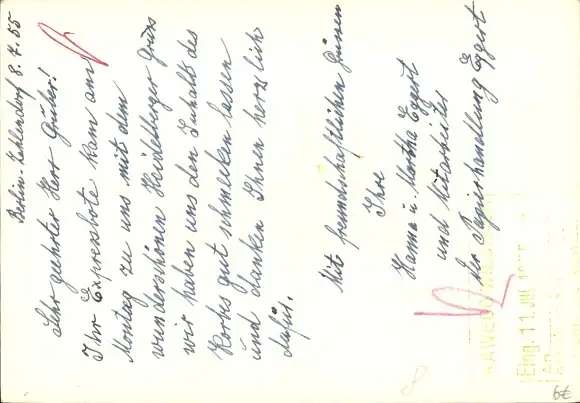 Berlin-Zehlendorf 8.7.55
Sehr geehrter Herr Gruber!
Ihr Expressbote kam am
Montag zu uns mit dem
wunderschönen Heidelberger Gruss
wir haben uns den Inhalt des
Korbes gut schmecken lassen
und danken Ihnen herzlich
dafür.
Mit freundschaftlichen Grüssen
Ihre
Hanna u. Martha Eggert
und Mitarbeiter
der Papierhandlung Eggert
Eing. 11. JUL
8
6€